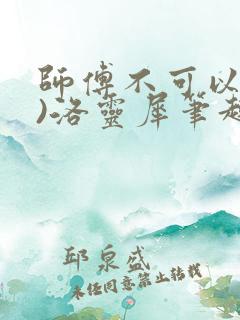 師傅不可以
)洛靈犀筆趣
邱泉盛
未經同意禁止轉載